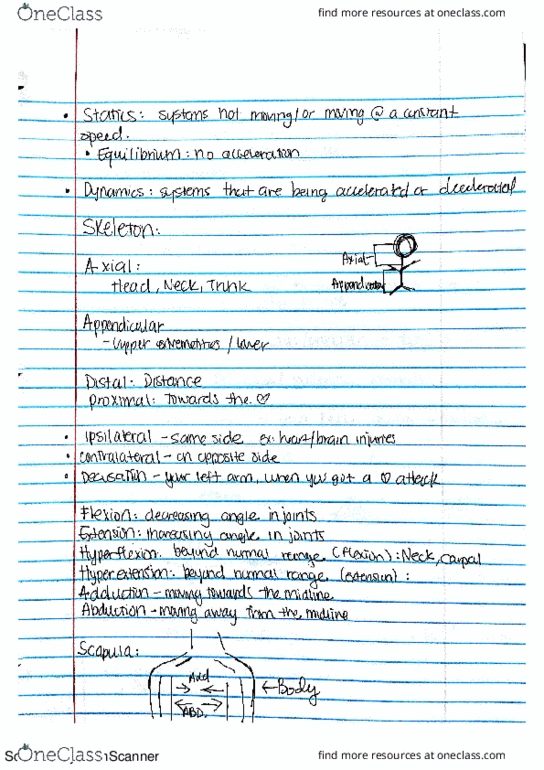 OneClass
find more resources at oneclass.com
• Statics: systems not moving/or moving @ a constant
speed.
• Equilibrium: no acceleration
• Dynamics: systems that are being accelerated or decelerated
Skeleton:
Axial:
Head, Neck, Trunk
Axial
Appendicular
Appendicular
- Upper extremetities / lower
Distal: Distance
Proximal: Towards the ♡
• Ipsilateral - same side ex: heart/brain injuries
• contralateral - on opposite side
• Decusation - your left arm, when you got a ♡ attack
Flexion: decreasing angle in joints
Extension: increasing angle in joints
Hyperflexion: beyond normal range (flexion): Neck, Carpal
Hyperextension: beyond normal range (extension):
Adduction - moving towards the midline
Abduction - moving away from the midline
Scapula:
Add
ABD.
← Body
OneClass
Scanner
find more resources at oneclass.com